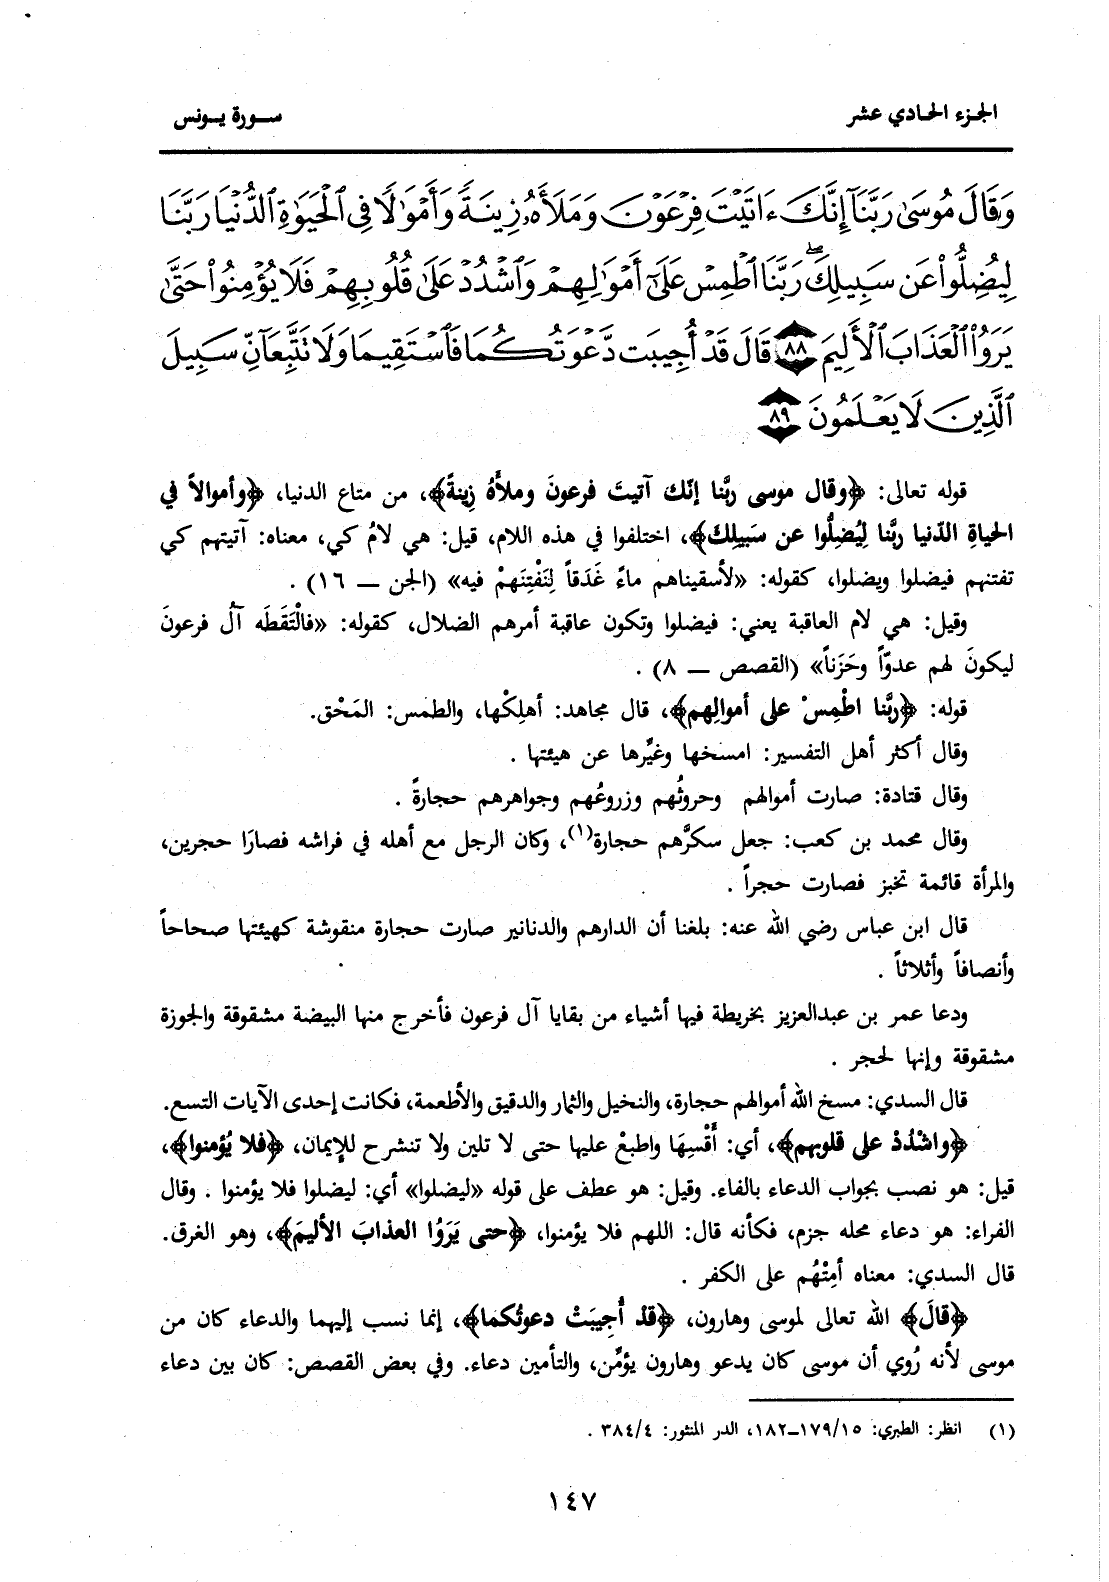 الجزء الحادي عشر
سورة يونس
وَقَالَ مُوسَىٰ رَبَّنَآ إِنَّكَ ءَاتَيْتَ فِرْعَوْنَ وَمَلَأَهُۥ زِينَةً وَأَمْوَٰلًا فِى ٱلْحَيَوٰةِ ٱلدُّنْيَا رَبَّنَا
لِيُضِلُّوا۟ عَن سَبِيلِكَ ۖ رَبَّنَا ٱطْمِسْ عَلَىٰٓ أَمْوَٰلِهِمْ وَٱشْدُدْ عَلَىٰ قُلُوبِهِمْ فَلَا يُؤْمِنُوا۟ حَتَّىٰ
يَرَوُا۟ ٱلْعَذَابَ ٱلْأَلِيمَ ٨٨ قَالَ قَدْ أُجِيبَت دَّعْوَتُكُمَا فَٱسْتَقِيمَا وَلَا تَتَّبِعَآنِّ سَبِيلَ
ٱلَّذِينَ لَا يَعْلَمُونَ ٨٩
قوله تعالى: ﴿وقال موسى ربَّنا إنّك آتيتَ فرعونَ وملأَهُ زِينةً﴾، من متاع الدنيا، ﴿وأموالاً في
الحياةِ الدّنيا ربَّنا لِيُضِلُّوا عن سَبيلِكَ﴾، اختلفوا في هذه اللام، قيل: هي لامُ كي، معناه: آتيتهم كي
تفتنهم فيضلوا ويضلوا، كقوله: «لأسقيناهم ماءً غَدَقاً لِنَفْتِنَهمْ فيه» (الجن ــ ١٦) .
وقيل: هي لام العاقبة يعني: فيضلوا وتكون عاقبة أمرهم الضلال، كقوله: «فالْتَقَطَه آلُ فرعونَ
ليكونَ لهم عدوّاً وحَزَناً» (القصص ــ ٨) .
قوله: ﴿ربَّنا اطْمِسْ على أموالِهم﴾، قال مجاهد: أهلِكْها، والطمس: المَحْق.
وقال أكثر أهل التفسير: امسخها وغيِّرها عن هيئتها .
وقال قتادة: صارت أموالهم وحروثُهم وزروعُهم وجواهرهم حجارةً .
وقال محمد بن كعب: جعل سكرَّهم حجارة(١)، وكان الرجل مع أهله في فراشه فصارَا حجرين،
والمرأة قائمة تخبز فصارت حجراً .
قال ابن عباس رضي الله عنه: بلغنا أن الدارهم والدنانير صارت حجارة منقوشة كهيئتها صحاحاً
وأنصافاً وأثلاثاً .
ودعا عمر بن عبدالعزيز بخريطة فيها أشياء من بقايا آل فرعون فأخرج منها البيضة مشقوقة والجوزة
مشقوقة وإنها لحجر .
قال السدي: مسخ الله أموالهم حجارة، والنخيل والثمار والدقيق والأطعمة، فكانت إحدى الآيات التسع.
﴿واشْدُدْ على قلوبهم﴾، أي: أَقْسِهَا واطبعْ عليها حتى لا تلين ولا تنشرح للإيمان، ﴿فلا يُؤمنوا﴾،
قيل: هو نصب بجواب الدعاء بالفاء. وقيل: هو عطف على قوله «ليضلوا» أي: ليضلوا فلا يؤمنوا . وقال
الفراء: هو دعاء محله جزم، فكأنه قال: اللهم فلا يؤمنوا، ﴿حتى يَرَوُا العذابَ الأليمَ﴾، وهو الغرق.
قال السدي: معناه أمِتْهُم على الكفر .
﴿قالَ﴾ الله تعالى لموسى وهارون، ﴿قدْ أُجِيبَتْ دعوتُكما﴾، إنما نسب إليهما والدعاء كان من
موسى لأنه رُوي أن موسى كان يدعو وهارون يؤمِّن، والتأمين دعاء. وفي بعض القصص: كان بين دعاء
(١) انظر: الطبري: ١٥/١٧٩ــ١٨٢، الدر المنثور: ٤/٣٨٤ .
١٤٧